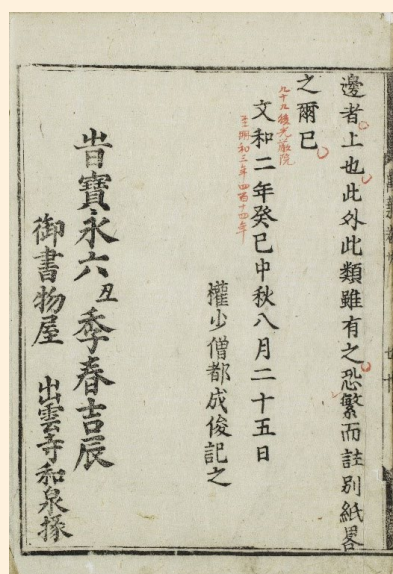 邊者上也此外此類雖有之恐繁而註別紙畧
之爾已
九十九後光厳院
文和二年癸巳中秋八月二十五日
至明和三年四百十四年
權少僧都成俊記之
旹寶永六丑季春吉辰
御書物屋 出雲寺和泉掾